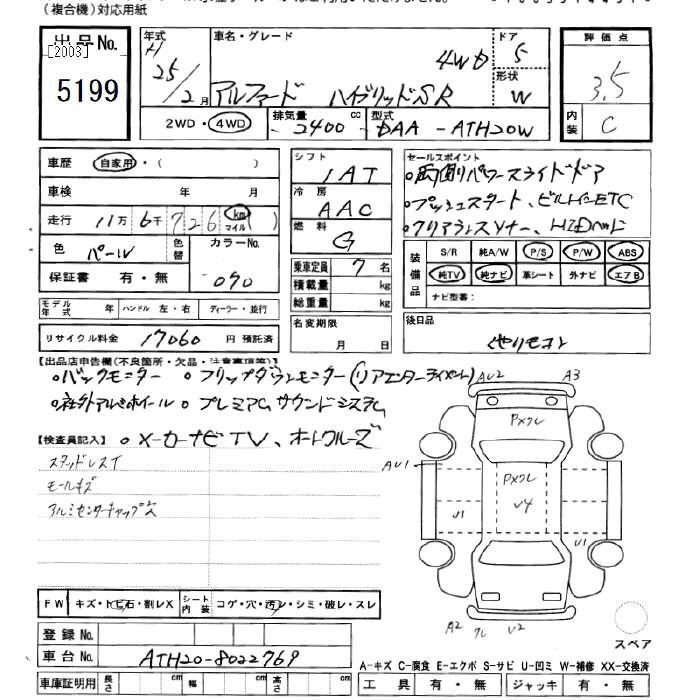 (複合機)対応用紙
出品No.
[2003]
5199
年式 車名・グレード ドア
H 25/2月 アルファード ハイブリッドSR 4WD 5
形状 W
2WD・4WD 排気量 2400 cc 型式 DAA-ATH20W
評価点
3.5
内装 C
車歴 自家用・( )
車検 年 月
走行 11万6千726 km マイル ( )
色 パール 色替 カラーNo. 070
保証書 有・無
シフト 1AT
冷房 AAC
燃料 G
乗車定員 7名
積載量 kg
総重量 kg
セールスポイント
○両側パワースライドドア
○プッシュスタート、ビルトインETC
○クリアランスソナー、HIDヘッド
装備品 S/R 純A/W P/S P/W ABS
純TV 純ナビ 革シート 外ナビ エアB
ナビ型番:
モデル年式 年 ハンドル 左・右 ディーラー・並行
リサイクル料金 17060 円 預託済
名変期限 月 日
後日品
【出品店申告欄(不良箇所・欠品・注意事項等)】
○バックモニター ○フリップダウンモニター(リアエンターテイメント)
○社外アルミホイール ○プレミアムサウンドシステム
【検査員記入】 ○メーカーナビTV、オートクルーズ
スタッドレスT
モールキズ
アルミセンターキャップ欠
AU2 A3
PXワレ
AU1
PXワレ
U4
U1
U1
A2 ワレ U2
スペア
FW キズ・トビ石・割レX シート内装 コゲ・穴・汚レ・シミ・破レ・スレ
登録No.
車台No. ATH20-8022769
車庫証明用 長さ cm 幅 cm 高さ cm
A-キズ C-腐食 E-エクボ S-サビ U-凹ミ W-補修 XX-交換済
工具 有・無 ジャッキ 有・無